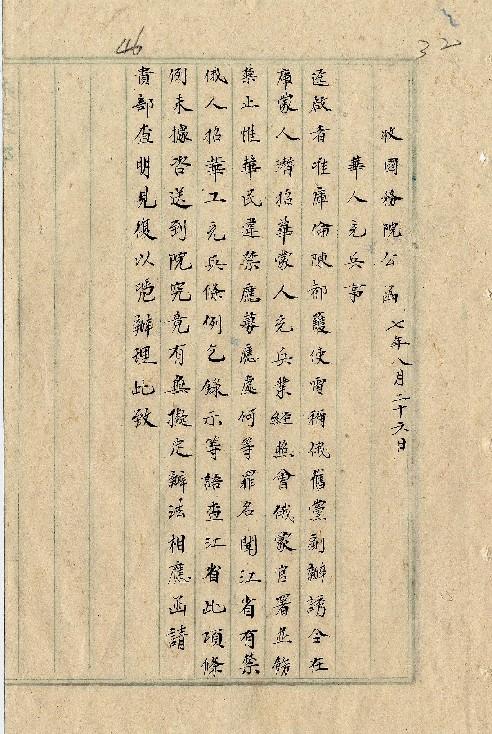 46
32
收國務院公函 七年八月二十六日
華人充兵事
逕啟者准庫倫陳都護使電稱俄舊黨副辦誘令在
庫蒙人潛招華蒙人充兵業經照會俄蒙官署並飭
禁止惟華民違禁應募應處何等罪名聞江省有禁
俄人招華工充兵條例乞錄示等語查江省此項條
例未據咨送到院究竟有無擬定辦法相應函請
貴部查明見復以憑辦理此致